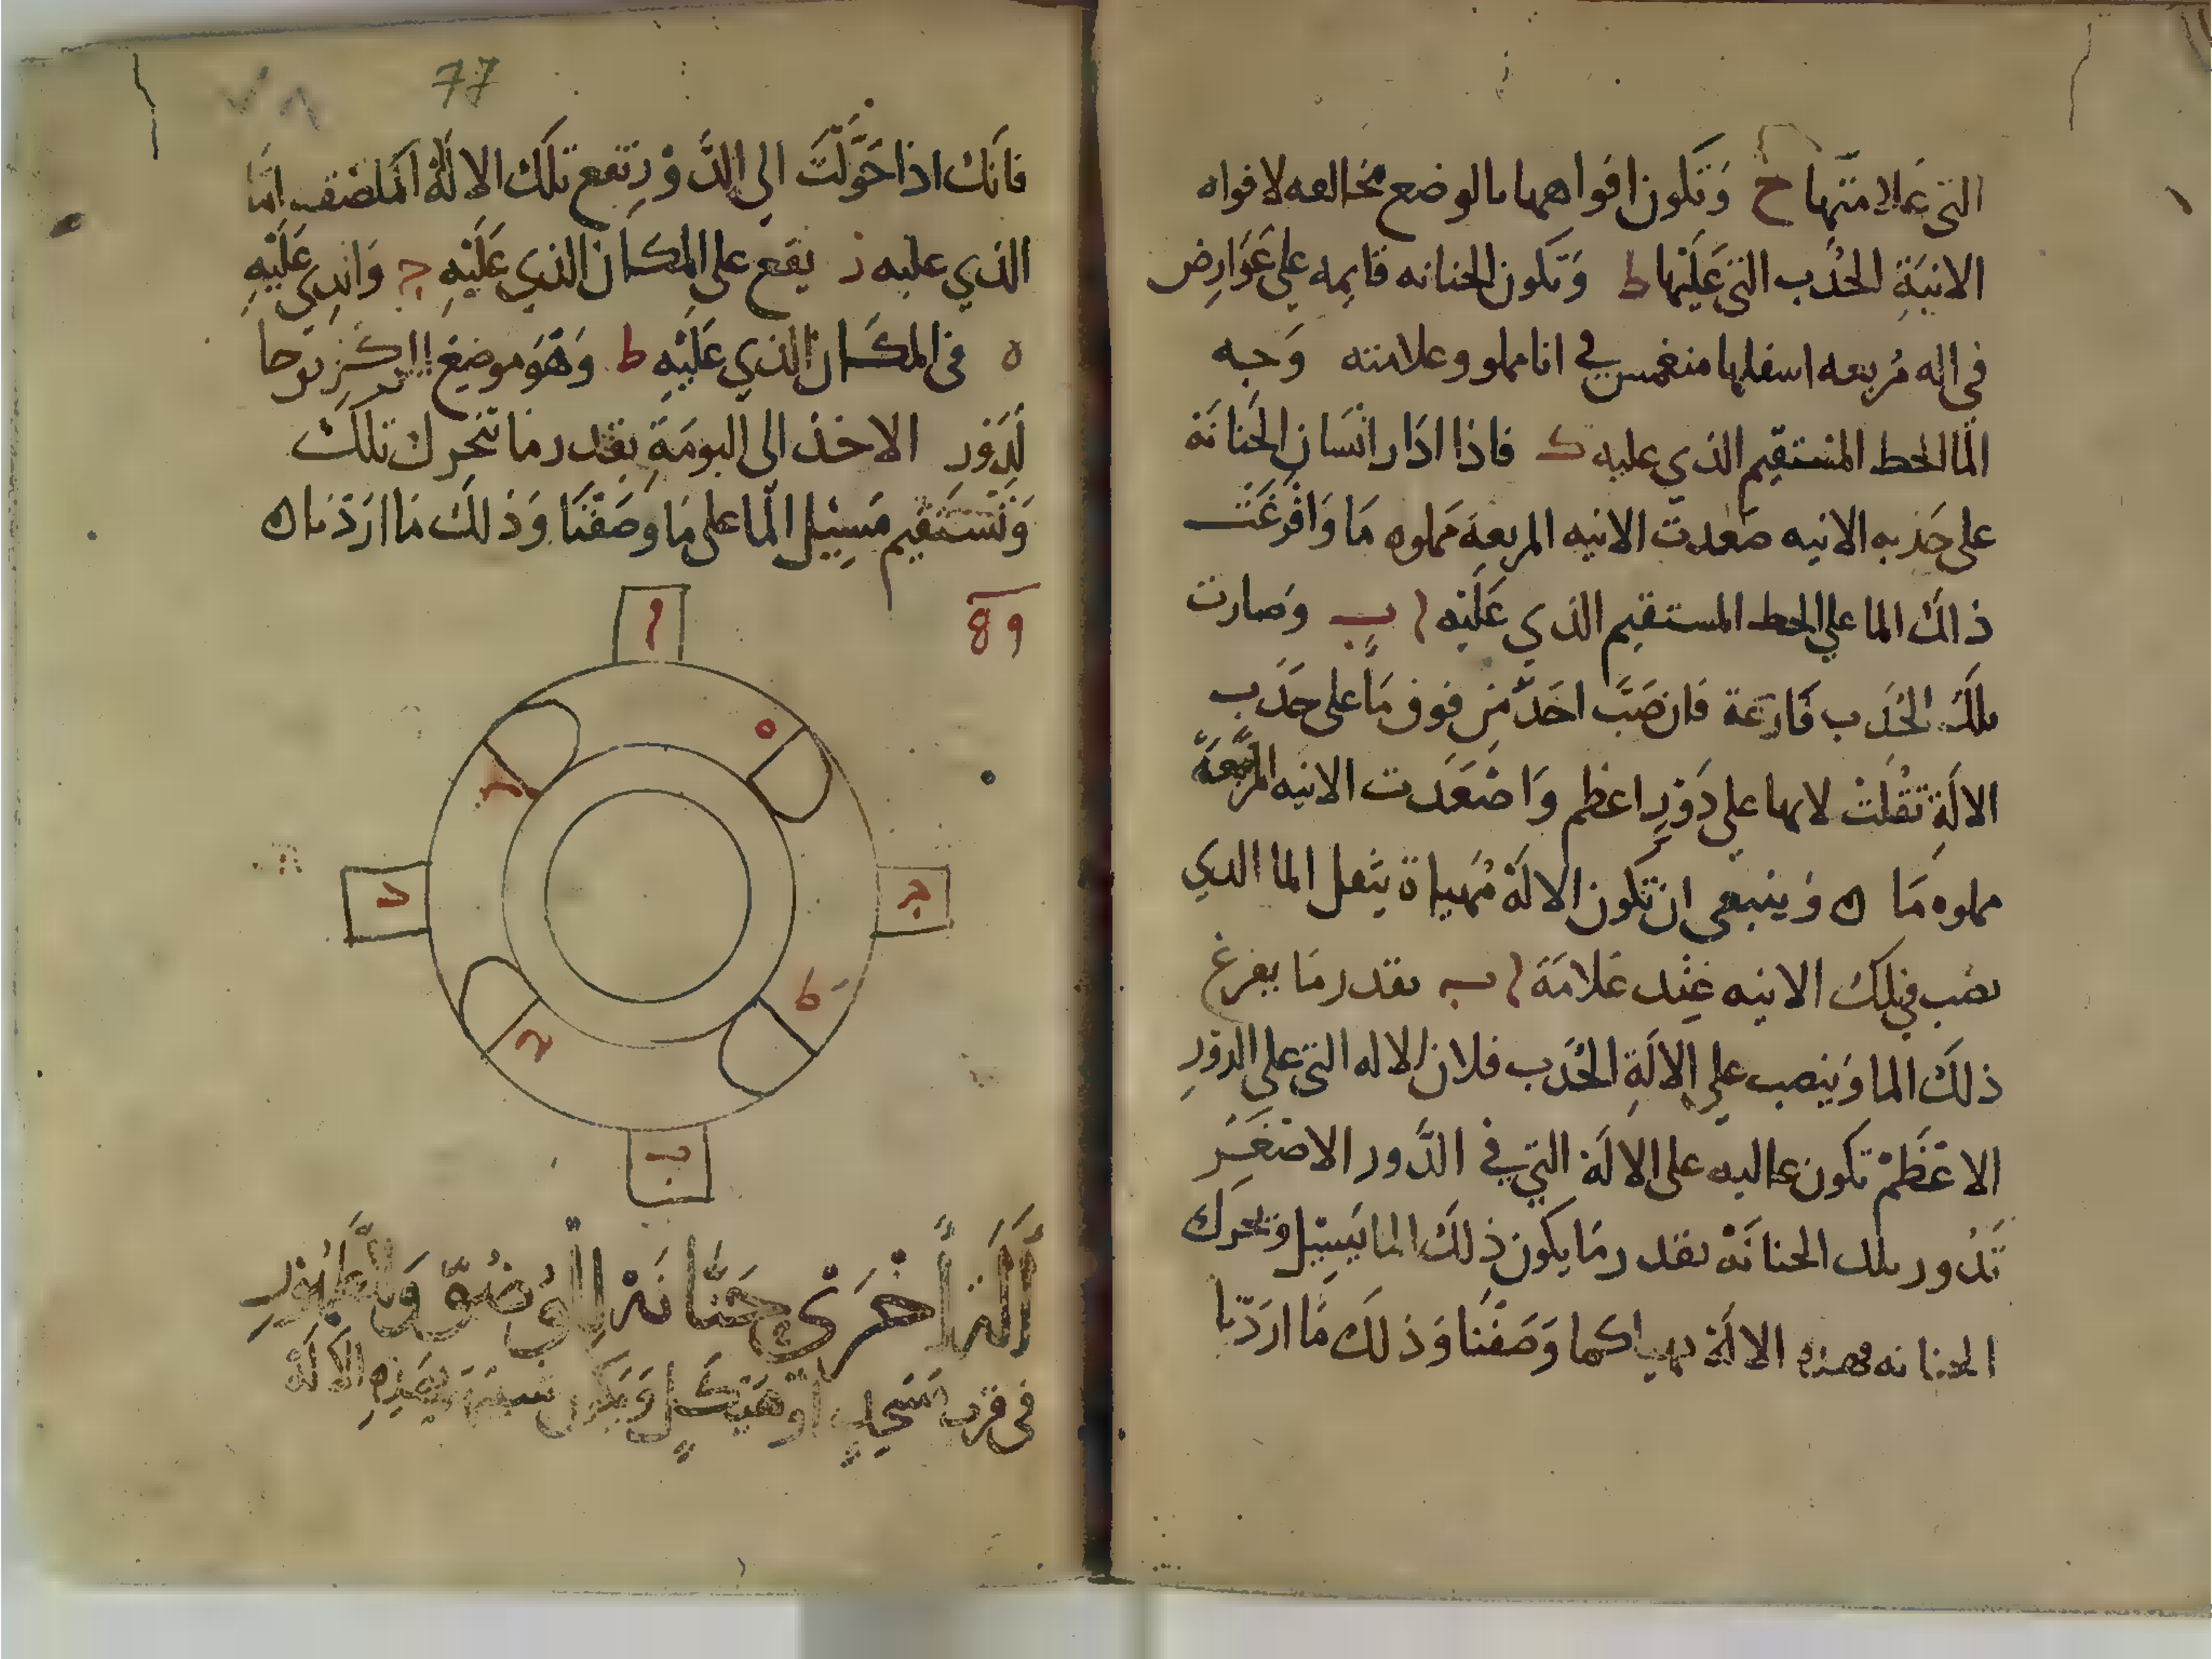 التي علامتها ح وَتَكون افواهها بالوضع مخالفه لافواه
الانيَةِ الحُدب التي عَليْها ط وَتكون الحنانه قايمه علي عَوَارِض
في اله مُربعه اسفلها منغمس في انا مملو وعلامته وَجه
المَا الخط المستقيم الذي عليه ك فاذا ادَار انسَان الحَنانَة
على حَدبه الانيه صَعدت الانيه المربعة مَملوه مَا وَافرغَت
ذالك الما علي الخط المستقيم الذي عَلَيْه ا ب وَصَارت
تلكَ الحُدَب فَارغة فان صَبَّ احَدٌ مِن فوق مَاً على حَدَب
الالَةِ تَقُلَتْ لانها على دَوْرٍ اعظم وَاصْعَدت الانيه المربَّعَةَ
مملوه مَا ه وَينبغي ان تكون الالَة مُهياة يثقل الما الذي
يصَب في تلك الانيه عِنْد عَلامَة ا ب بقدر مَا يفرغ
ذلك الما وَينصب علي الالَةِ الحُدَب فلان الاله التي على الدورِ
الاعْظَمْ تكون عاليه على الالَة التي في الدَّور الاصْغَر
تَدُور تلك الحنانَة بقدر مَا يكون ذلكَ الما يَسِيْل وَتحرك
الحنانه فهذه الالَة تهيا كما وَصَفْنَا وَذلك مَا ارَدْنا
77
٧٨
فاَنك اذا حَوَّلْتَ الى الدَّوْر تقع تلَك الالَة المَلصَقه امَّا
الذي عليه ز يقَع على المكان الذي عَلَيْهِ ج وَالذِي عَلَيْهِ
ه في المكَان الذي عَلَيْهِ ط وَهْوَ موضِع
لدَوْرِ الاخذ الى البومَةِ بقدر مَا تتحرك تلكَ
وَتَسْتَقيم مَسِيْل المَا على مَا وَصَفْنَا وَذلكَ مَا ارَدْنا ه
89
ا
ه
ح
د
ج
ط
ب
أَلَة أُخْرَىْ حَنَّانَة لِلْوُضُوّ وَالطَّهُوْرِ
في قرب مَسْجِدٍ اوْ هَيْكَلٍ وَيكون بهَذِهِ الالَة